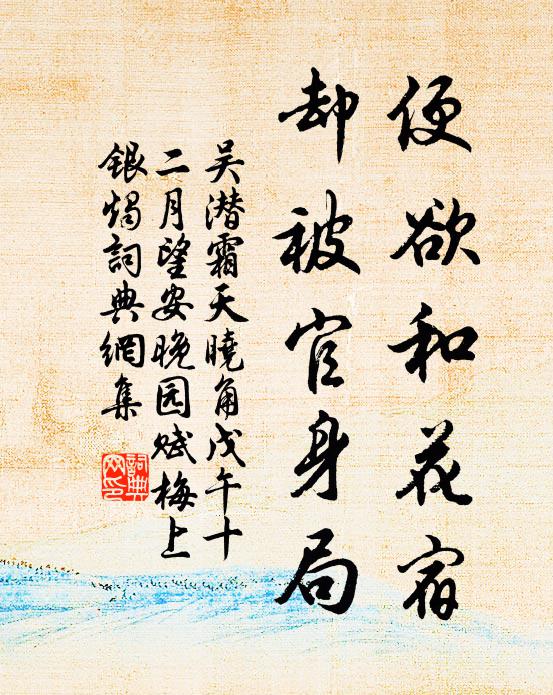 便欲和花宿
却被官身局
吴潜霜天曉角戊午十
二月望安晚园赋梅上
银燭詞典網集
詞典
网印